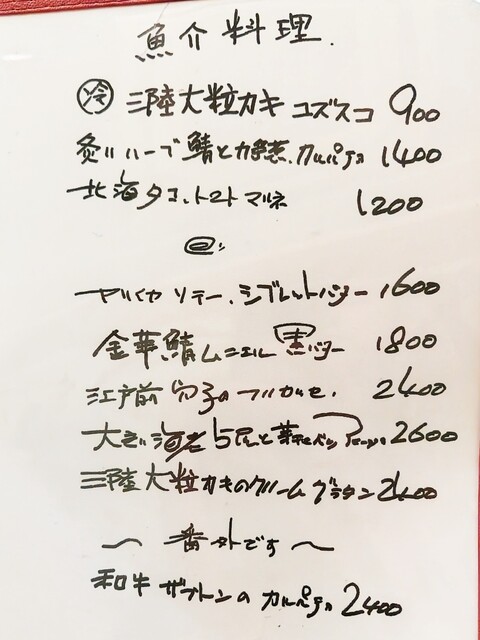 魚介料理.
冷 三陸大粒カキ ユズスコ 900
炙りハーブ鯖と カルパチョ 1400
北海タコ、トマト マリネ 1200
ヤリイカ ソテー、シブレットバター 1600
金華鯖ムニエル 焦バター 1800
江戸前 穴子の 2400
大正海老 2600
三陸大粒カキのクリームグラタン 2400
〜 番外です 〜
和牛 ザブトンの カルパチョ 2400